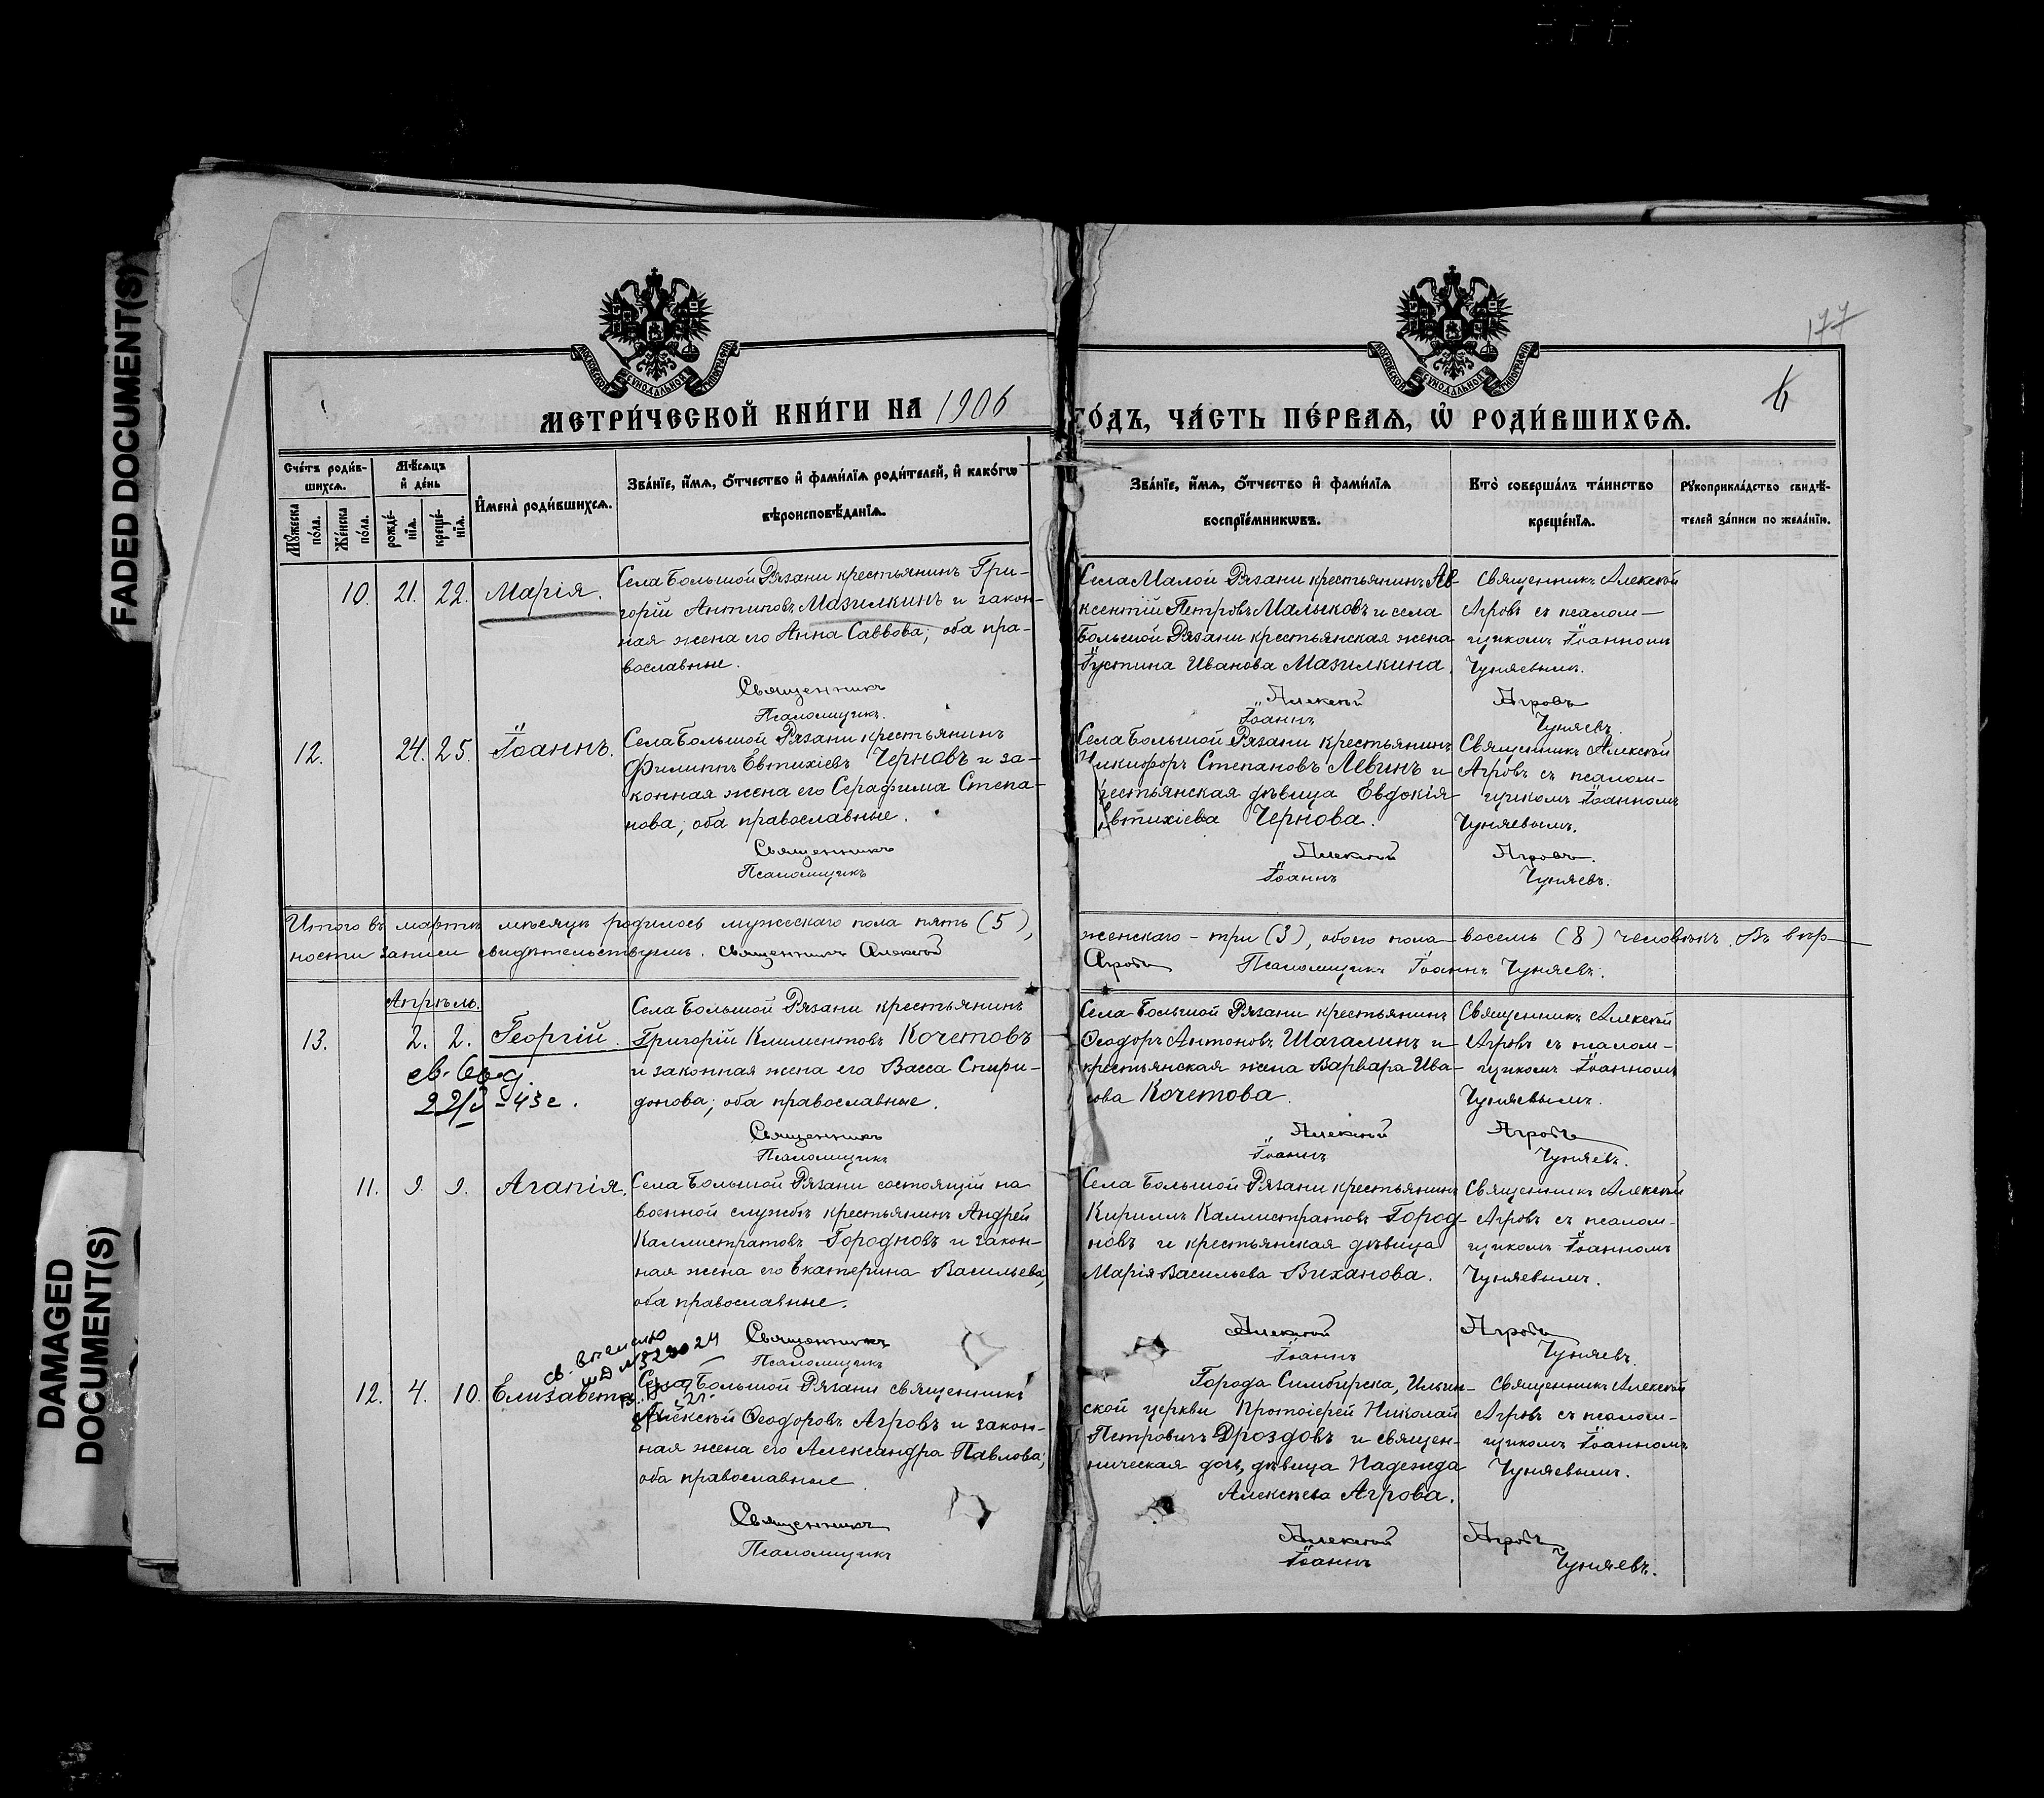 FADED DOCUMENT(S)
DAMAGED
DOCUMENT(S)
177
МОСКОВСКОЙ СѴНОДАЛЬНОЙ ТИПОГРАФІИ
МОСКОВСКОЙ СѴНОДАЛЬНОЙ ТИПОГРАФІИ
МЕТРИ́ЧЕСКОЙ КНИ́ГИ НА 1906
ГО́ДЪ, ЧА́СТЬ ПЕ́РВАѦ, Ѡ҆ РОДИ́ВШИХСѦ.
Сче́тъ роди́в-
шихсѧ.
Мꙋ́жеска
по́ла.
Же́нска
по́ла.
Мѣ́сѧцъ
и҆ де́нь
рожде́-
нїѧ.
креще́-
нїѧ.
И҆мена̀ роди́вшихсѧ.
Зва́нїе, и҆́мѧ, ѻ҆́тчество и҆ фами́лїѧ роди́телей, и҆ како́гѡ
вѣроисповѣ́данїѧ.
Зва́нїе, и҆́мѧ, ѻ҆́тчество и҆ фами́лїѧ
воспрїе́мникѡвъ.
Кто̀ соверша́лъ та́инство
креще́нїѧ.
Рꙋкоприкла́дство свидѣ́-
телей за́писи по жела́нїю.
10. 21. 22. Марія.
Села Большой Рязани крестьянинъ Гри-
горій Антиповъ Мазилкинъ и закон-
ная жена его Анна Саввова; оба пра-
вославные.
Священникъ
Псаломщикъ.
Села Малой Рязани крестьянинъ Ав-
ксентій Петровъ Малыковъ и села
Большой Рязани крестьянская жена
Іустина Иванова Мазилкина.
Алексѣй
Іоаннъ
Священникъ Алексѣй
Агровъ съ псалом-
щикомъ Іоанномъ
Чуняевымъ.
Агровъ
Чуняевъ.
12. 24. 25. Іоаннъ.
Села Большой Рязани крестьянинъ
Филиппъ Евтихіевъ Черновъ и за-
конная жена его Серафима Степа-
нова; оба православные.
Священникъ
Псаломщикъ
Села Большой Рязани крестьянинъ
Никифоръ Степановъ Левинъ и
крестьянская дѣвица Евдокія
Евтихіева Чернова.
Алексѣй
Іоаннъ
Священникъ Алексѣй
Агровъ съ псалом-
щикомъ Іоанномъ
Чуняевымъ.
Агровъ.
Чуняевъ.
Итого въ мартѣ мѣсяцѣ родилось мужескаго пола пять (5),
женскаго – три (3), обоего пола – восемь (8) человѣкъ. Въ вѣр-
ности записи свидѣтельствуемъ. Священникъ Алексѣй
Агровъ Псаломщикъ Іоаннъ Чуняевъ.
Апрѣль.
13. 2. 2. Георгій.
22/V – 43 г.
Села Большой Рязани крестьянинъ
Григорій Климентовъ Кочетовъ
и законная жена его Васса Спири-
донова; оба православные.
Священникъ
Псаломщикъ
Села Большой Рязани крестьянинъ
Ѳеодоръ Антоновъ Шагалинъ и
крестьянская жена Варвара Ива-
нова Кочетова.
Алексѣй
Іоаннъ
Священникъ Алексѣй
Агровъ съ псалом-
щикомъ Іоанномъ
Чуняевымъ.
Агровъ
Чуняевъ.
11. 9. 9. Агапія.
Села Большой Рязани состоящій на
военной службѣ крестьянинъ Андрей
Каллистратовъ Городновъ и закон-
ная жена его Екатерина Васильева;
оба православные.
Священникъ
Псаломщикъ
Села Большой Рязани крестьянинъ
Кириллъ Каллистратовъ Город-
новъ и крестьянская дѣвица
Марія Васильева Виханова.
Алексѣй
Іоаннъ
Священникъ Алексѣй
Агровъ съ псалом-
щикомъ Іоанномъ
Чуняевымъ.
Агровъ
Чуняевъ.
12. 4. 10. Елизавета
Села Большой Рязани священникъ
Алексѣй Ѳеодоровъ Агровъ и закон-
ная жена его Александра Павлова;
оба православные.
Священникъ
Псаломщикъ
Города Симбирска, Ильин-
ской церкви Протоіерей Николай
Петровичъ Дроздовъ и священ-
ническая дочь, дѣвица Надежда
Алексѣева Агрова.
Алексѣй
Іоаннъ
Священникъ Алексѣй
Агровъ съ псалом-
щикомъ Іоанномъ
Чуняевымъ.
Агровъ
Чуняевъ.